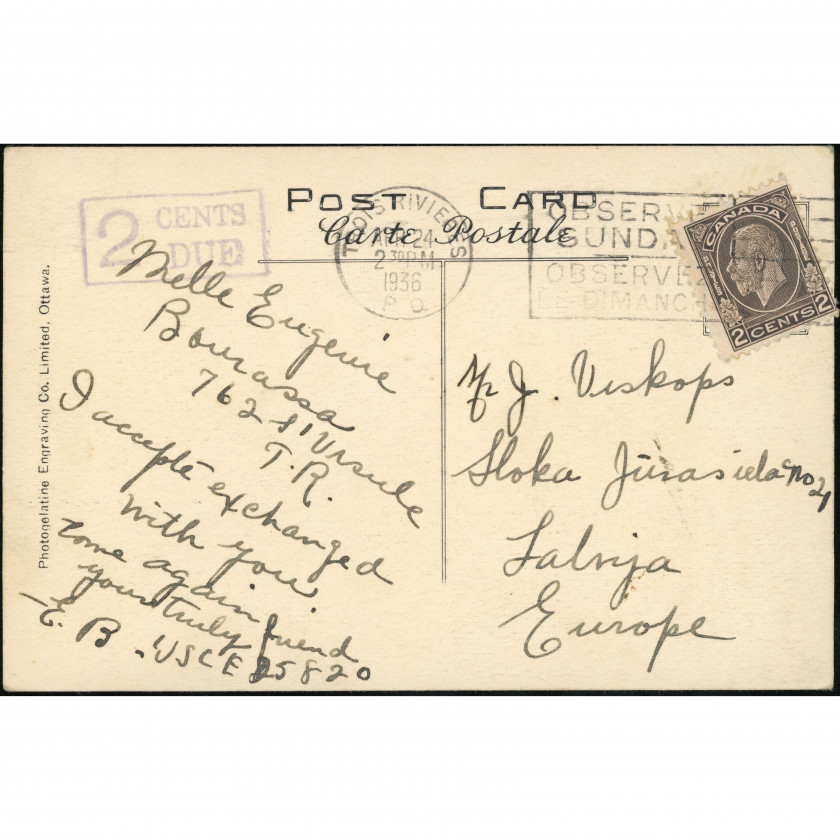 POST CARD
Carte Postale
2 CENTS
DUE
TROIS RIVIERES
APR 24
2 30 PM
1936
P.Q.
OBSERVE
SUNDAY
OBSERVEZ
LE DIMANCHE
CANADA
2 CENTS 2
Photogelatine Engraving Co. Limited, Ottawa.
Melle Eugenie
Bourassa
762 St Ursule
T.R.
I accepte exchanged
with you
come again
yours truly friend
E. B. USCE 25820
Mr J. Viskops
Sloka Jūras iela no 24
Latvija
Europe